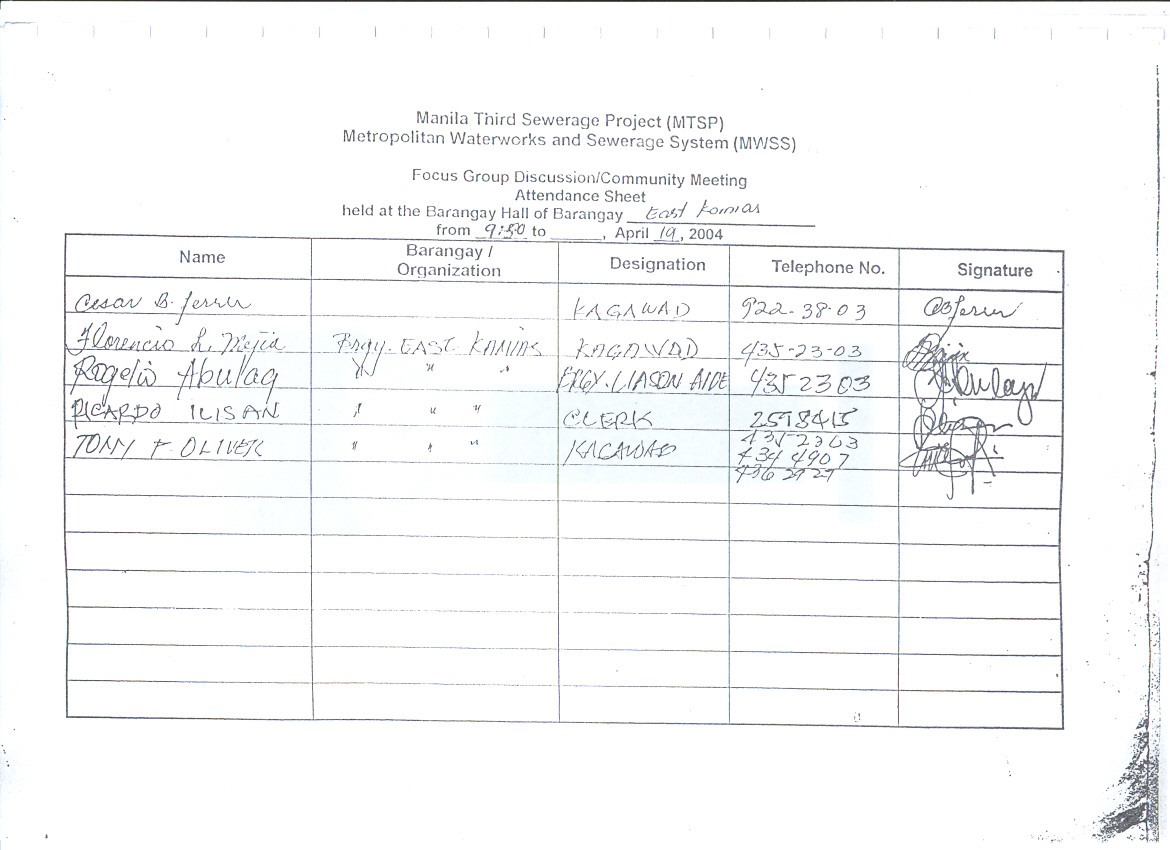 Manila Third Sewerage Project (MTSP)
Metropolitan Waterworks and Sewerage System (MWSS)
Focus Group Discussion/Community Meeting
Attendance Sheet
held at the Barangay Hall of Barangay East Kamias
from 9:50 to ______, April 19, 2004
Name Barangay / Organization Designation Telephone No. Signature
Cesar B. Ferrer KAGAWAD 922-38-03 CBFerrer
Florencio L. Mejia Brgy. EAST KAMIAS KAGAWAD 435-23-03
Rogelio Abulag " " " BRGY. LIASON AIDE 435 23 03
RICARDO ILISAN " " " CLERK 2598415
TONY F. OLIVER " " " KAGAWAD 435 2303
434 4907
436 2727